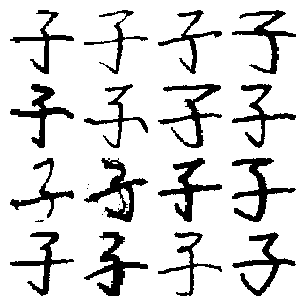 子子子子
子子子子
子子子子
子子子子